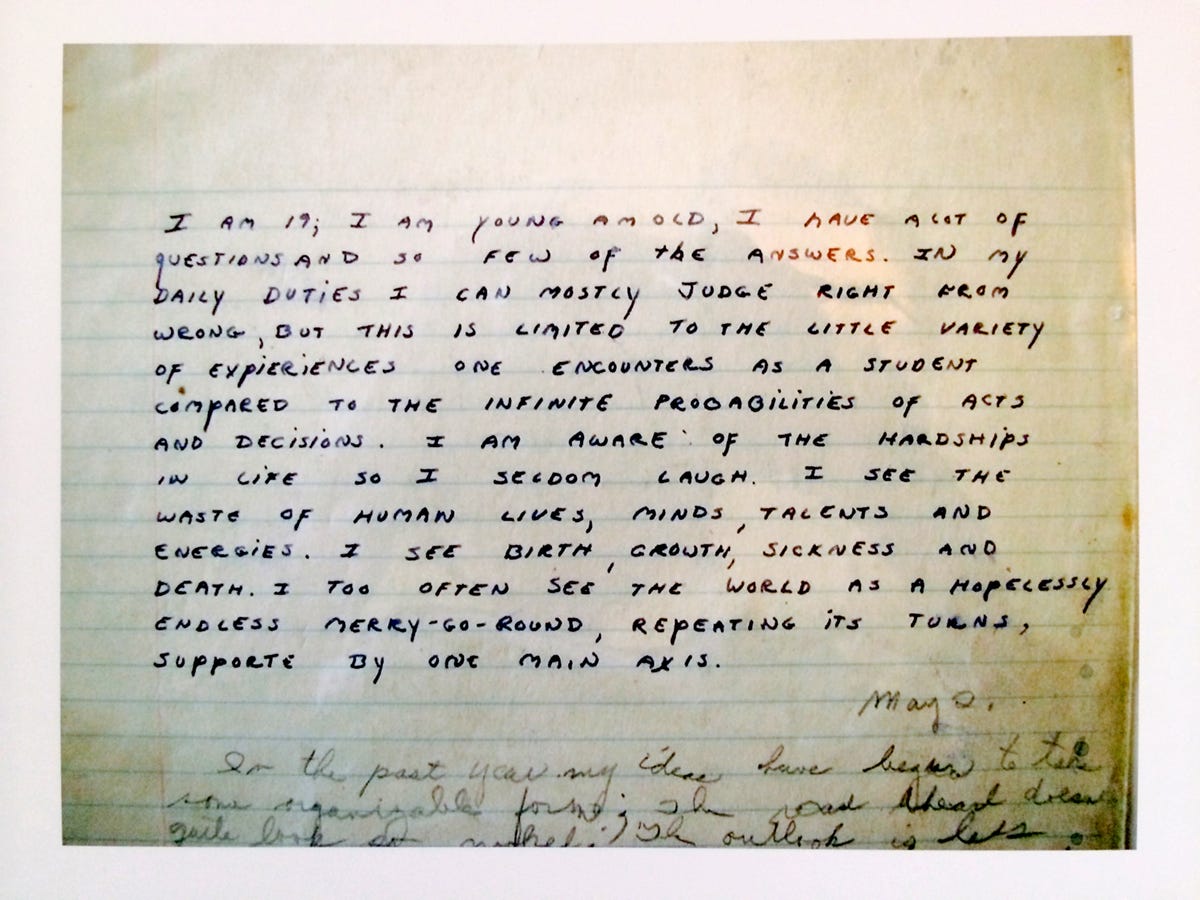 I AM 19; I AM YOUNG AM OLD, I HAVE A LOT OF
QUESTIONS AND SO FEW OF the ANSWERS. IN MY
DAILY DUTIES I CAN MOSTLY JUDGE RIGHT FROM
WRONG, BUT THIS IS LIMITED TO THE LITTLE VARIETY
OF EXPIERIENCES ONE ENCOUNTERS AS A STUDENT
COMPARED TO THE INFINITE PROBABILITIES OF ACTS
AND DECISIONS. I AM AWARE OF THE HARDSHIPS
IN LIFE SO I SELDOM LAUGH. I SEE THE
WASTE OF HUMAN LIVES, MINDS, TALENTS AND
ENERGIES. I SEE BIRTH, GROWTH, SICKNESS AND
DEATH. I TOO OFTEN SEE THE WORLD AS A HOPELESSLY
ENDLESS MERRY-GO-ROUND, REPEATING ITS TURNS,
SUPPORTE BY ONE MAIN AXIS.
May 2.
In the past year my ideas have begun to take
some organizable forms; The road ahead doesn
quite look so The outlook is less